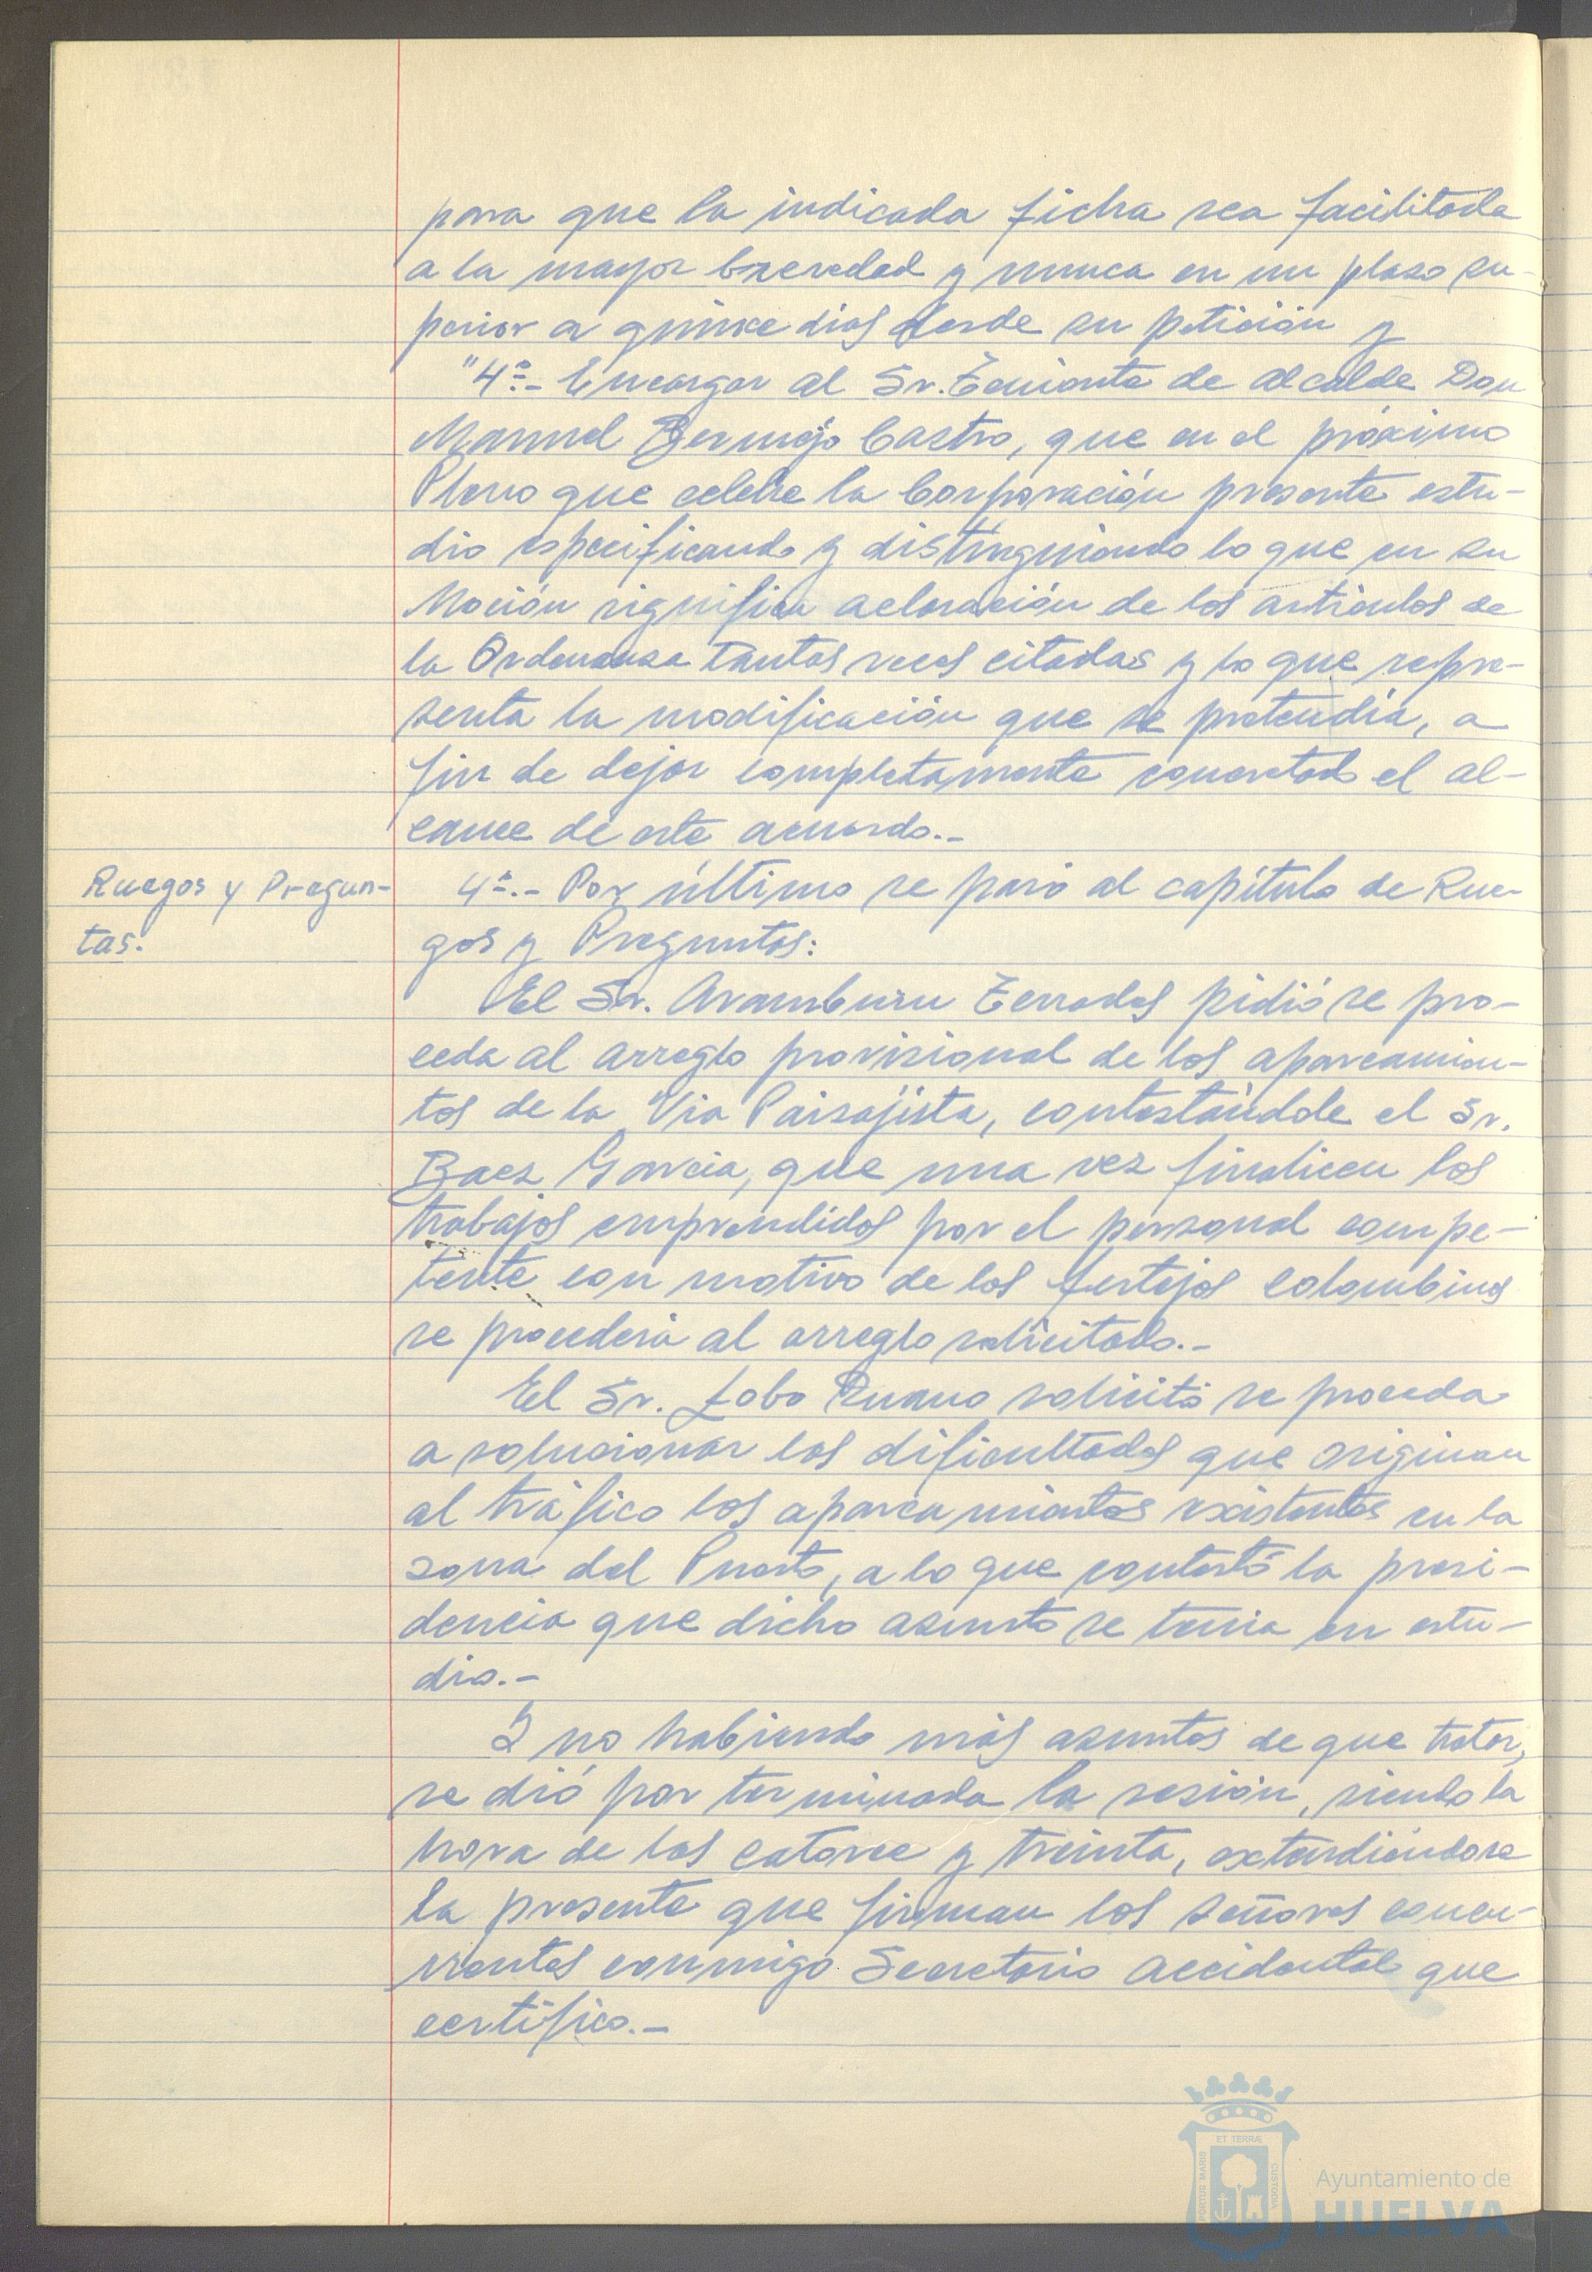 para que la indicada ficha sea facilitada
a la mayor brevedad y nunca en un plazo su-
perior a quince dias desde su petición y
"4º.- Encargar al Sr. Teniente de Alcalde Don
Manuel Bermejo Castro, que en el próximo
Pleno que celebre la Corporación presente estu-
dio especificando y distinguiendo lo que en su
Moción significa aclaración de los artículos de
la Ordenanza tantas veces citadas y lo que repre-
senta la modificación que se pretendía, a
fin de dejar completamente concretado el al-
cance de este acuerdo.-
Ruegos y Pregun-
tas.
4º.- Por último se pasó al capítulo de Rue-
gos y Preguntas:
El Sr. Aramburu Terrades pidió se pro-
ceda al arreglo provisional de los aparcamien-
tos de la Via Paisajista, contestándole el Sr.
Baez Garcia, que una vez finalicen los
trabajos emprendidos por el personal compe-
tente con motivo de los festejos colombinos
se procederá al arreglo solicitado.-
El Sr. Lobo Ruano solicitó se proceda
a solucionar las dificultades que originan
al tráfico los aparcamientos existentes en la
zona del Puerto, a lo que contestó la presi-
dencia que dicho asunto se tenia en estu-
dio.-
Y no habiendo más asuntos de que tratar,
se dió por terminada la sesión, siendo la
hora de las catorce y treinta, extendiéndose
la presente que firman los señores concu-
rrentes conmigo Secretario accidental que
certifico.-
ET TERRÆ
PORTUS MARIS
CUSTODIA
Ayuntamiento de
HUELVA